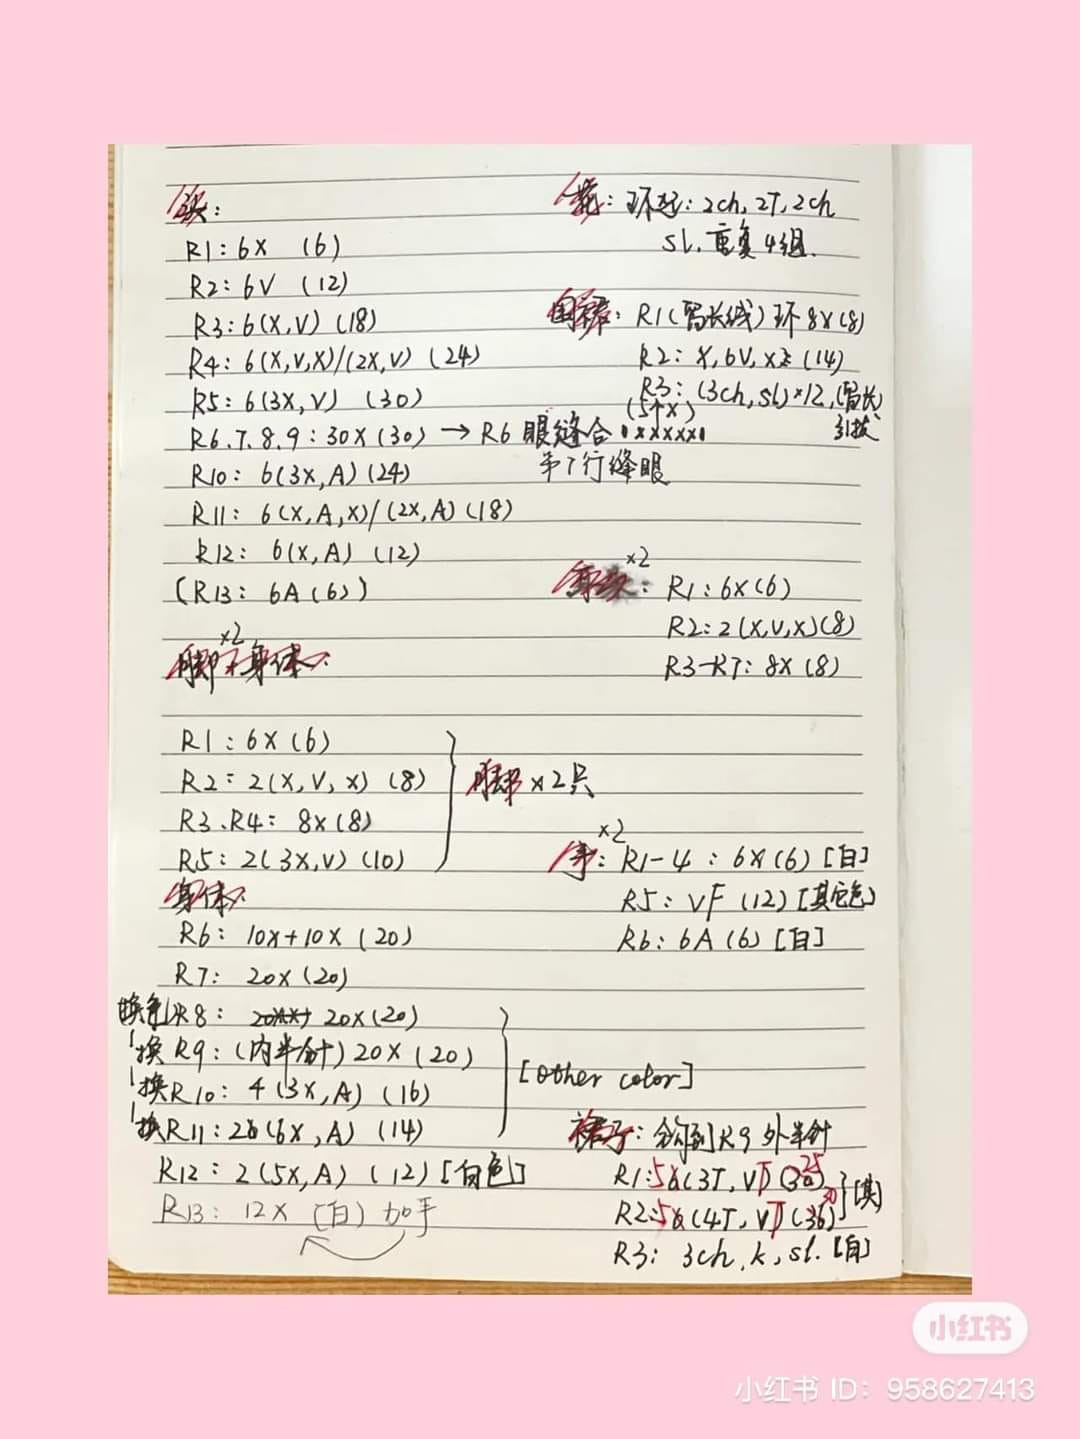 头：
R1：6X (6)
R2：6V (12)
R3：6(X,V) (18)
R4：6(X,V,X)/(2X,V) (24)
R5：6(3X,V) (30)
R6.7.8.9：30X(30) → R6 眼缝合
R10：6(3X,A)(24)
R11：6(X,A,X)/(2X,A)(18)
R12：6(X,A) (12)
(R13：6A(6))
×2
脚+身体：
R1：6X(6)
R2：2(X,V,X) (8)
R3、R4：8X(8)
R5：2(3X,V)(10)
脚×2只
身体：
R6：10X+10X (20)
R7：20X(20)
换色 R8：20X(20)
换 R9：(内半针)20X(20)
换 R10：4(3X,A) (16)
换 R11：2(6X,A) (14)
[other color]
R12：2(5X,A) (12)[白色]
R13：12X [白] 加手
花：环起：2ch,2T,2ch
sl. 重复4组.
R1(留长线)环 8X(8)
R2：X,6V,X (14)
R3：(3ch,sl)×12,(留长
引拔
(5个X)
XXXXX
第7行缝眼
×2
R1：6X(6)
R2：2(X,V,X)(8)
R3-R7：8X(8)
×2
手：R1-4：6X(6)[白]
R5：VF(12)[其它色]
R6：6A(6)[白]
裙子：钩到R9外半针
R1：5(3T,VT) 25
R2：5(4T,VT) 30
[其]
R3：3ch,k,sl.[白]
小红书
小红书 ID：958627413